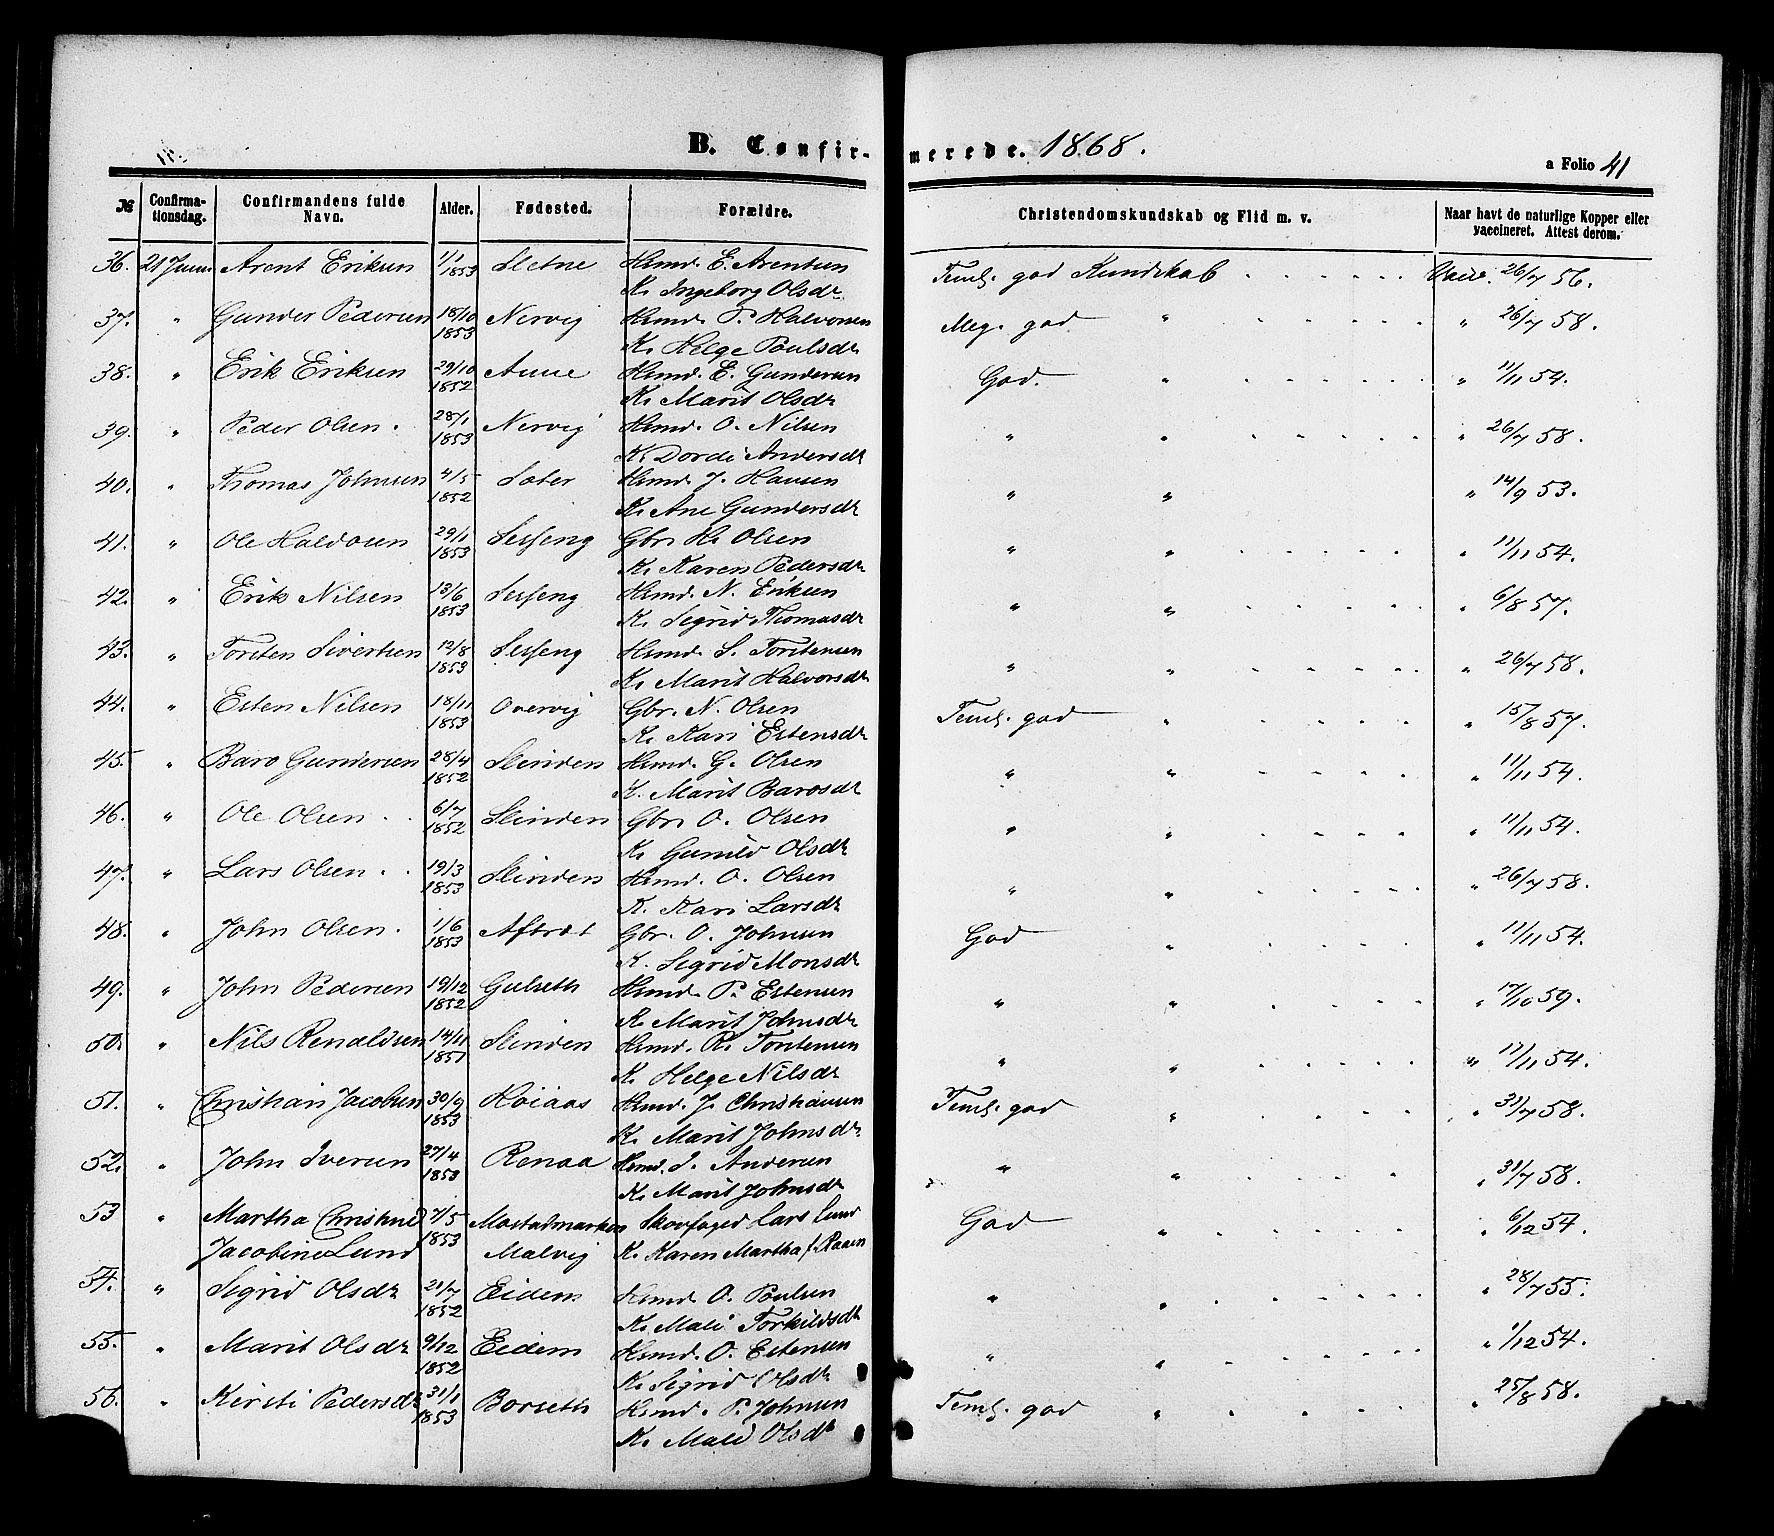 B. Confirmerede. 1868.
a Folio 41
№ Confirmationsdag. Confirmandens fulde Navn. Alder. Fødested. Forældre. Christendomskundskab og Flid m. v. Naar havt de naturlige Kopper eller vaccineret. Attest derom.
36. 21 Juni Arent Eriksen 1/1 1853 Sletne Hsmd. E. Arentsen Teml. god Kundskab . . . . . Vacc. 26/7 56.
K. Ingeborg Olsdr
37. " Gunder Pedersen 18/10 1853 Nervig Hsmd. P. Halvorsen Meg. god " . . . . . " 26/7 58.
K. Helge Poulsdr
38. " Erik Eriksen 29/10 1852 Aune Hsmd. E. Gundersen God. " . . . . . " 11/11 54.
K. Marit Olsdr
39. " Peder Olsen. 28/1 1853 Nervig Hsmd. O. Nilsen " " . . . . . " 26/7 58.
K. Dordi Andersdr
40. " Thomas Johnsen 4/5 1852 Sæter Hsmd. J. Hansen " " " 14/9 53.
K. Ane Gundersdr
41. " Ole Haldosen 29/1 1853 Selseng Gbr. H. Olsen " " . . . . . " 11/11 54.
K. Karen Pedersdr
42. " Erik Nilsen 13/6 1853 Selseng Hsmd. N. Eriksen " " . . . . . " 6/8 57.
K. Sigrid Thomasdr
43. " Torsten Sivertsen 12/8 1853 Selseng Hsmd. S. Torstensen " " . . . . . " 26/7 58.
K. Marit Halvorsdr
44. " Esten Nilsen 18/11 1853 Overvig Gbr. N. Olsen Teml. god " . . . . . " 15/8 57.
K. Kari Estensdr
45. " Baro Gundersen 28/4 1852 Slinden Hsmd. G. Olsen " " . . . . . " 11/11 54.
K. Marit Barosdr
46. " Ole Olsen . . 6/7 1852 Slinden Gbr. O. Olsen " " . . . . . " 11/11 54.
K. Gunild Olsdr
47. " Lars Olsen . . 19/3 1853 Slinden Hsmd. O. Olsen " " . . . . . " 26/7 58.
K. Kari Larsdr
48. " John Olsen. 1/6 1853 Aftret Gbr. O. Johnsen God " . . . . . " 11/11 54.
K. Sigrid Monsdr
49. " John Pedersen 19/12 1852 Gulseth Hsmd. P. Estensen " " . . . . " 17/10 59.
K. Marit Johnsdr
50. " Nils Renaldsen 14/11 1851 Slinden Hsmd. R. Torstensen " " . . . . " 17/11 54.
K. Helge Nilsdr
51. " Christian Jacobsen 30/9 1853 Høiaas Hsmd. J. Christiansen Teml. god " . . . . " 31/7 58.
K. Marit Johnsdr.
52. " John Iversen 27/4 1853 Renaa Hsmd. I. Andersen " " . . . . " 31/7 58.
K. Marit Johnsdr
53 " Martha Christine 7/5 1853 Mostadmarken Skovfoged Lars Lund God " . . . . . " 6/12 54.
Jacobine Lund Malvig K. Karen Martha f. Raaen
54. " Sigrid Olsdr 21/7 1852 Eidem Hsmd. O. Poulsen " " . . . . . " 28/7 55.
K. Mali Torkildsdr
55. " Marit Olsdr 9/12 1852 Eidem Hsmd. O. Estensen " " . . . . . " 1/12 54.
K. Sigrid Olsdr
56. " Kirsti Pedersdr 31/1 1853 Borseth Hsmd. P. Johnsen Teml. god " . . . . " 25/8 58.
K. Mali Olsdr